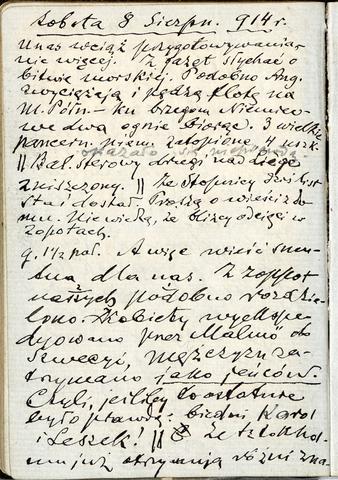 Sobota 8 Sierpn. 914 r.
U nas wciąż przygotowywania
nic więcej. Z gazet słychać o
bitwie morskiej. Podobno Ang.
zwyciężają i pędzą flotę na
M. Półn - ku brzegom Niemiec-
we dwa ognie biorąc. 3 wielkie
pancern. niem. zatopione, 4 uszk.
okazało się nieprawdą
|| Bal. sterowy drugi nad Liège
zniszczony. || Ze Stopnicy
Proszą o wieści z do-
mu. Nie wiedzą, że bliscy odcięci w
Zopotach.
g. 1 1/2 pał. A więc wieść smu-
tna dla nas. Z Zoppot
naszych podobno rozdzie-
lono. Kobiety wyekspe-
dyowano przez Malmö do
Szwecyi, mężczyzn za-
trzymano jako jeńców.
Czyli, jeśliby to ostatnie
było prawdą: biedni Karol
i Leszek! || Ze Sztokhol-
mu już otrzymują różni zna-